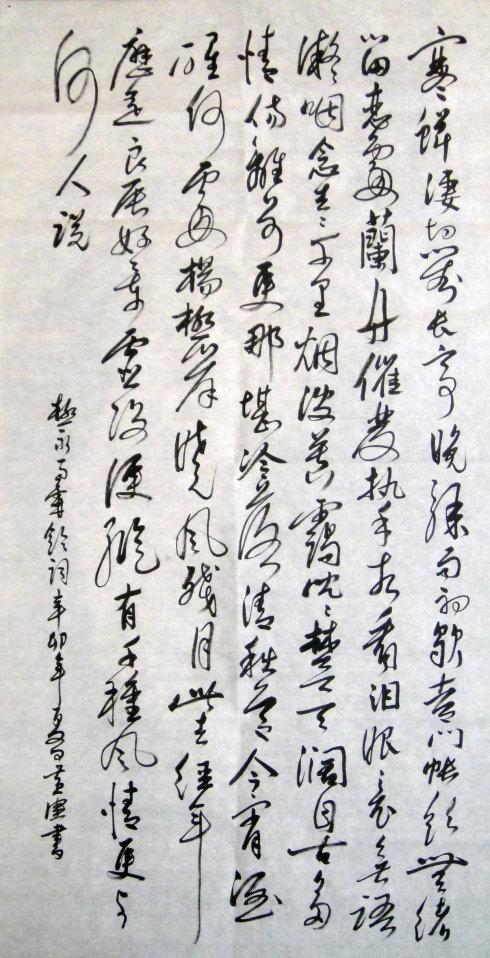 寒蟬凄切對長亭晚骤雨初歇都门帐飲無緒
留恋處蘭舟催發执手相看泪眼竟無語
凝咽念去々千里烟波暮靄沈々楚天濶自古多
情傷離别更那堪冷落清秋節今宵酒
醒何處楊柳岸曉風殘月此去經年
應是良辰好景虚設便縱有千種風情更与
何人說
柳永雨霖鈴詞辛卯年夏日書